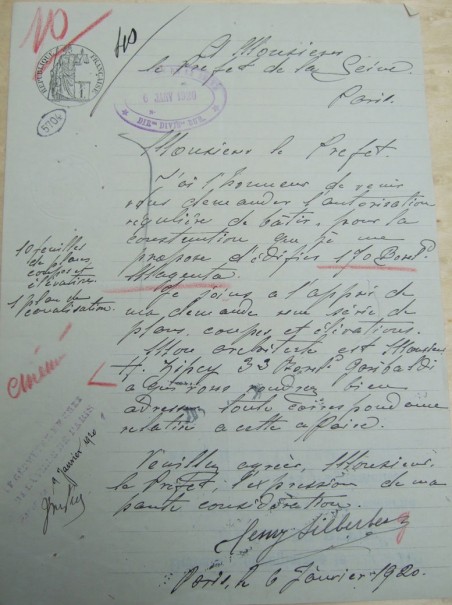 10
40
RÉPUBLIQUE FRANÇAISE
5704
A Monsieur
le Prefet de la Seine.
Paris.
Monsieur le Prefet.
J'ai l'honneur de venir
vous demander l'autorisation
regulière de bâtir, pour la
construction que je me
propose d'édifier 170 Boulᵈ
Magenta.
Je joins à l'appui de
ma demande une série de
plans, coupes, et élévations.
Mon architecte est Monsieur
H. 33 Boulᵈ Garibaldi
à qui vous voudrez bien
adresser toute correspondance
relative à cette affaire.
Veuillez agréer, Monsieur
le Préfet, l'expression de ma
haute considération.
Henry Silberberg
Paris, le 6 Janvier 1920.
10 feuilles
de plans,
coupes et
élévations
1 plan de
canalisation.
cinéma
9 Janvier 1920